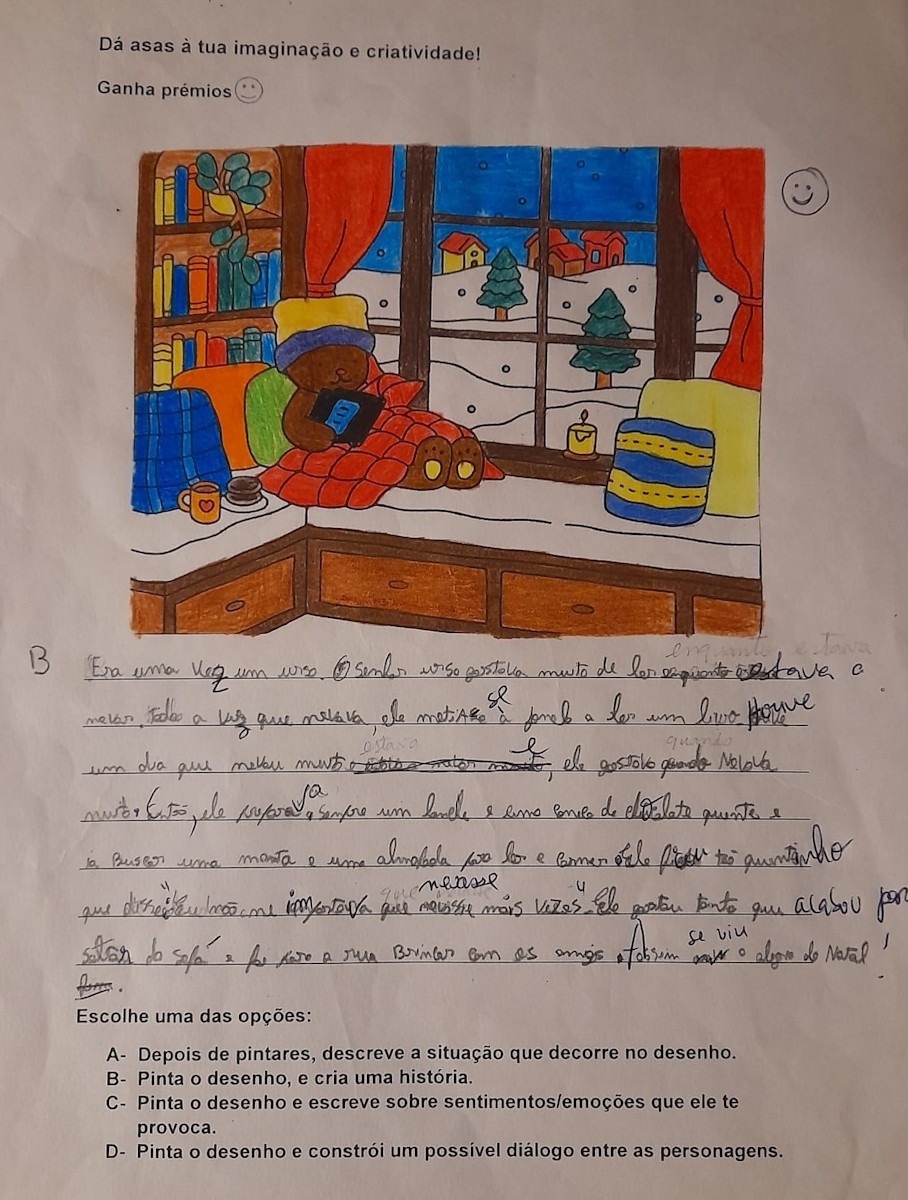 Dá asas à tua imaginação e criatividade!
Ganha prémios
enquanto estava
B "Era uma vez um urso. O Senhor urso gostava muito de ler enquanto estava a
nevar. Todas a vez que nevava, ele metia-se à janela a ler um livro houve
estava quando
um dia que nevou muito e, ele gostava quando Nevava
muito. Então, ele preparava sempre um lanche e uma caneca de chocolate quente e
ia Buscar uma manta e uma almofada para ler e comer. Ele ficou tão quentinho
que disse: "Eu não me importava que nevasse mais vezes". Ele gostou tanto que acabou por
saltar do sofá e foi para a rua Brincar com os amigos. Assim se viu a alegria do Natal!
Escolhe uma das opções:
A- Depois de pintares, descreve a situação que decorre no desenho.
B- Pinta o desenho, e cria uma história.
C- Pinta o desenho e escreve sobre sentimentos/emoções que ele te
provoca.
D- Pinta o desenho e constrói um possível diálogo entre as personagens.